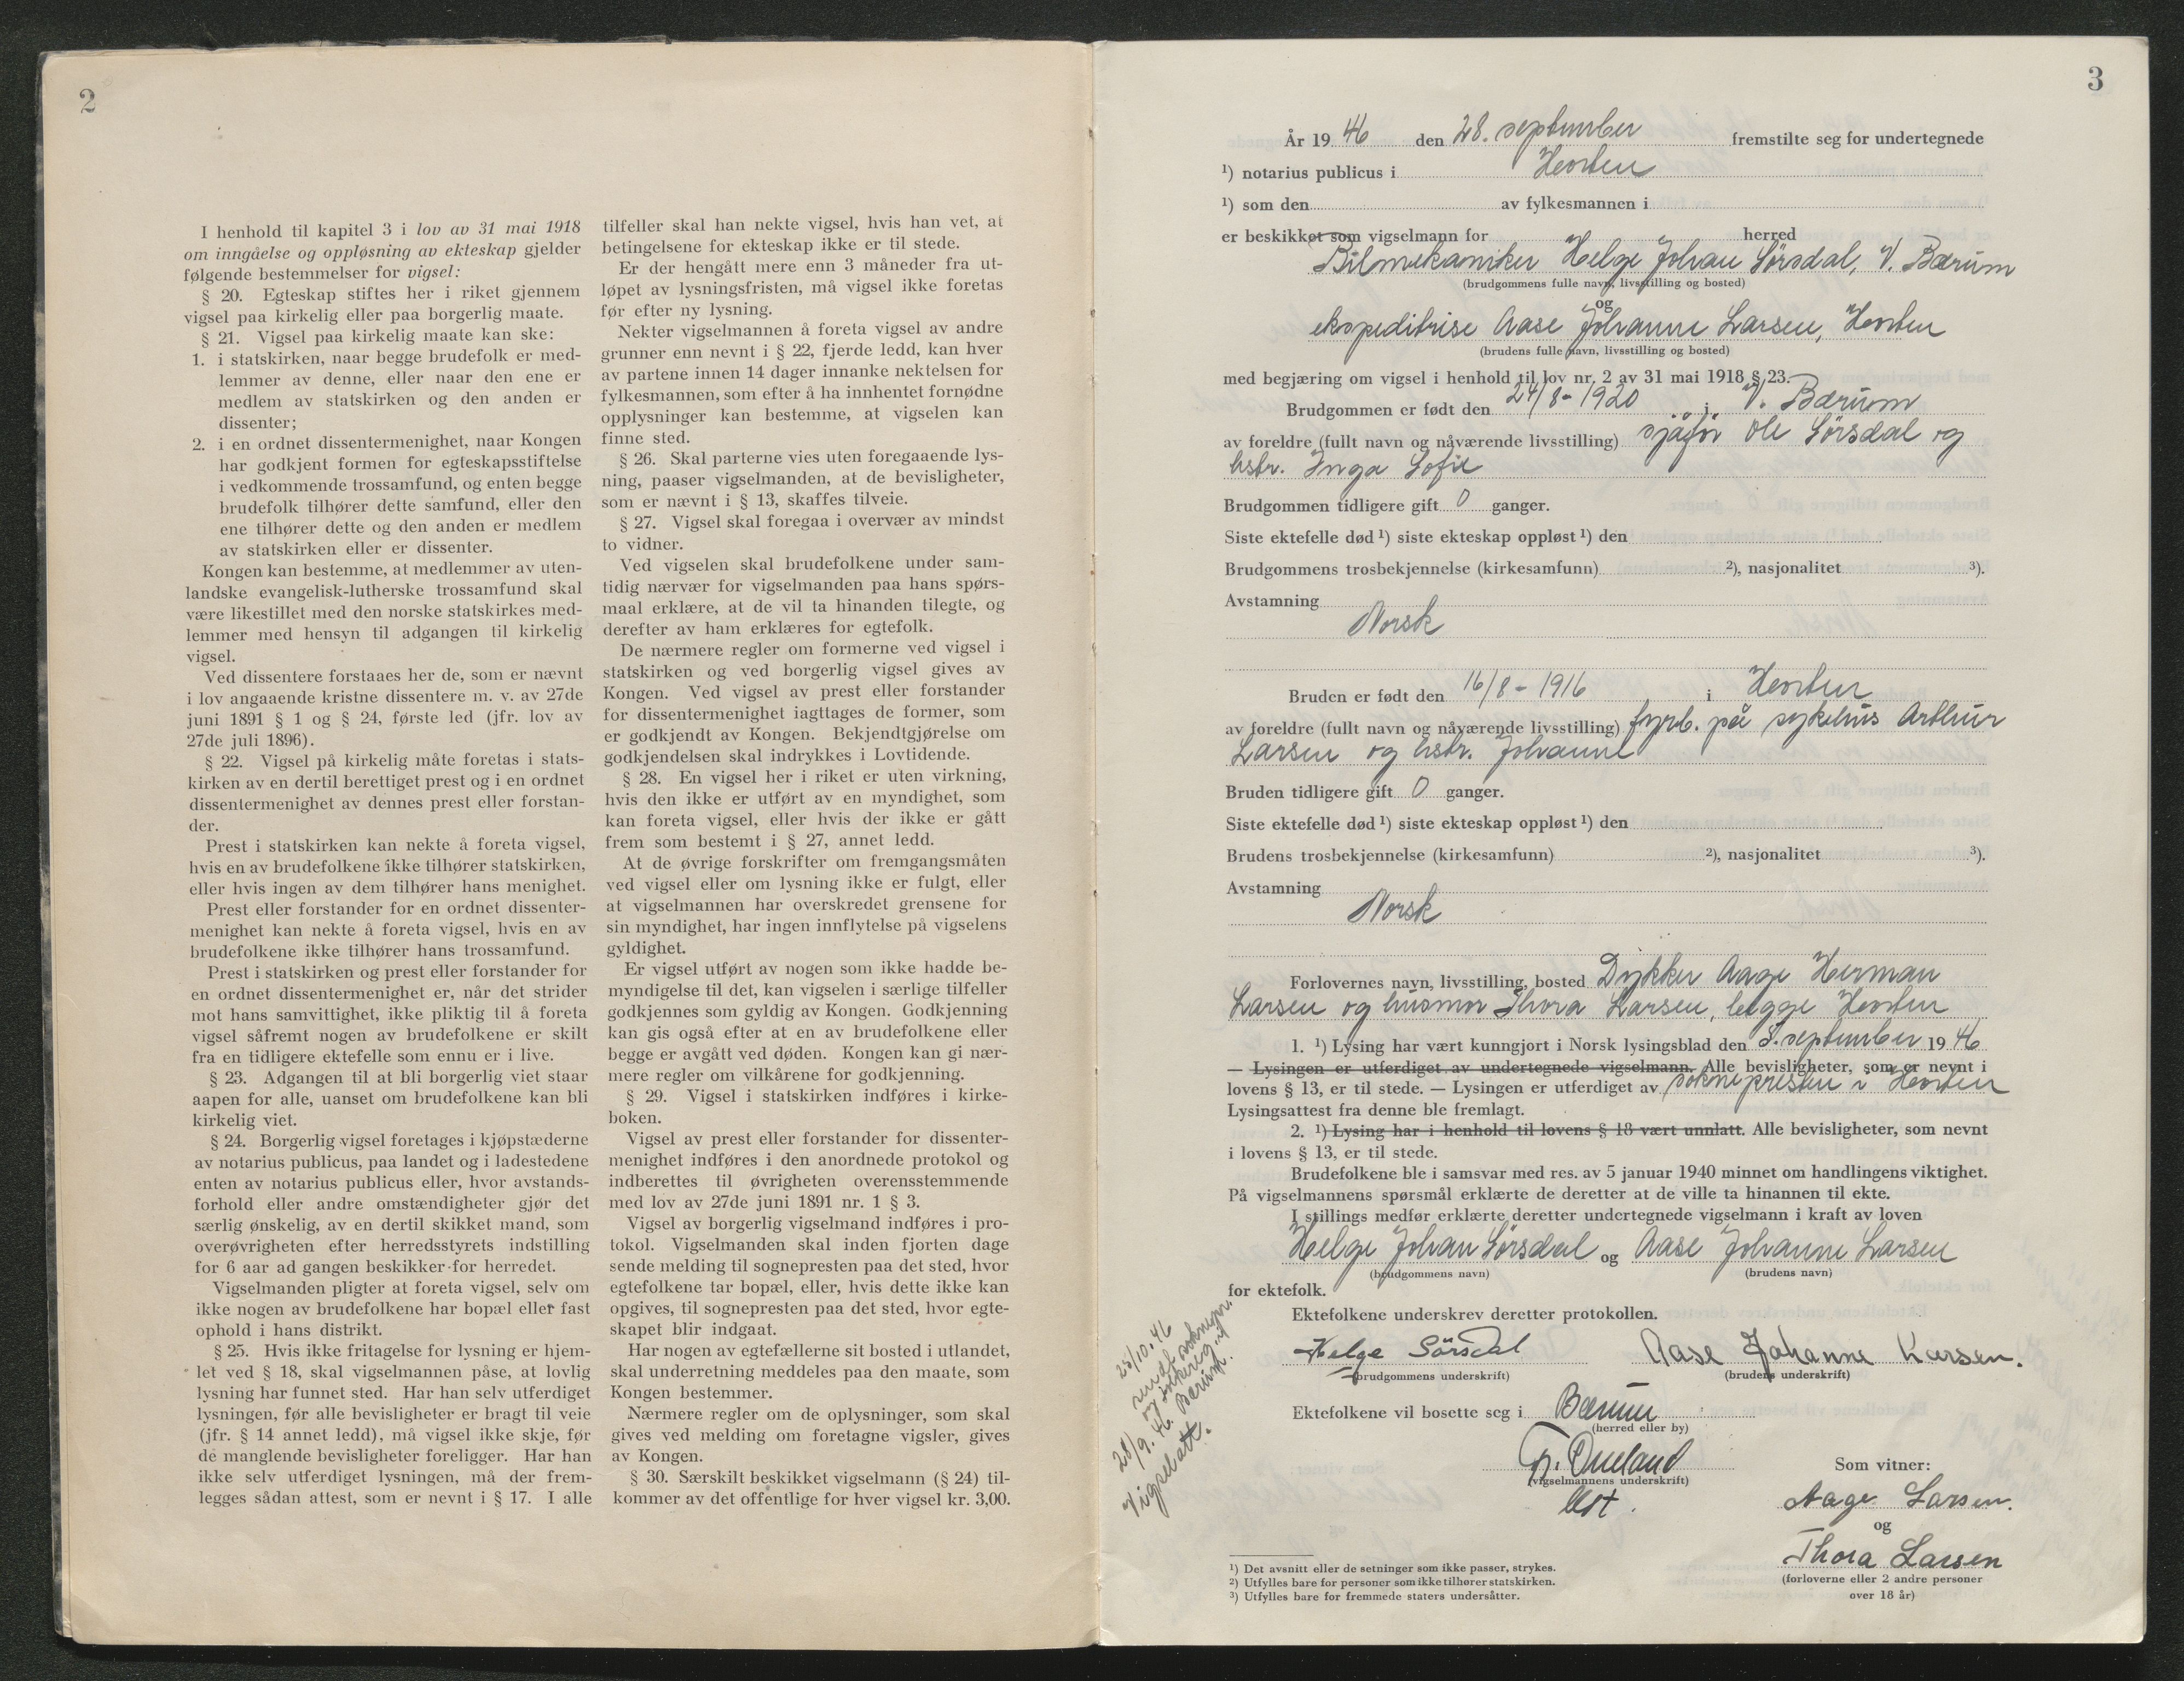 2
I henhold til kapitel 3 i lov av 31 mai 1918
om inngåelse og oppløsning av ekteskap gjelder
følgende bestemmelser for vigsel:
§ 20. Egteskap stiftes her i riket gjennem
vigsel paa kirkelig eller paa borgerlig maate.
§ 21. Vigsel paa kirkelig maate kan ske:
1. i statskirken, naar begge brudefolk er med-
lemmer av denne, eller naar den ene er
medlem av statskirken og den anden er
dissenter;
2. i en ordnet dissentermenighet, naar Kongen
har godkjent formen for egteskapsstiftelse
i vedkommende trossamfund, og enten begge
brudefolk tilhører dette samfund, eller den
ene tilhører dette og den anden er medlem
av statskirken eller er dissenter.
Kongen kan bestemme, at medlemmer av uten-
landske evangelisk-lutherske trossamfund skal
være likestillet med den norske statskirkes med-
lemmer med hensyn til adgangen til kirkelig
vigsel.
Ved dissentere forstaaes her de, som er nævnt
i lov angaaende kristne dissentere m. v. av 27de
juni 1891 § 1 og § 24, første led (jfr. lov av
27de juli 1896).
§ 22. Vigsel på kirkelig måte foretas i stats-
kirken av en dertil berettiget prest og i en ordnet
dissentermenighet av dennes prest eller forstan-
der.
Prest i statskirken kan nekte å foreta vigsel,
hvis en av brudefolkene ikke tilhører statskirken,
eller hvis ingen av dem tilhører hans menighet.
Prest eller forstander for en ordnet dissenter-
menighet kan nekte å foreta vigsel, hvis en av
brudefolkene ikke tilhører hans trossamfund.
Prest i statskirken og prest eller forstander for
en ordnet dissentermenighet er, når det strider
mot hans samvittighet, ikke pliktig til å foreta
vigsel såfremt nogen av brudefolkene er skilt
fra en tidligere ektefelle som ennu er i live.
§ 23. Adgangen til at bli borgerlig viet staar
aapen for alle, uanset om brudefolkene kan bli
kirkelig viet.
§ 24. Borgerlig vigsel foretages i kjøpstæderne
av notarius publicus, paa landet og i ladestedene
enten av notarius publicus eller, hvor avstands-
forhold eller andre omstændigheter gjør det
særlig ønskelig, av en dertil skikket mand, som
overøvrigheten efter herredsstyrets indstilling
for 6 aar ad gangen beskikker for herredet.
Vigselmanden pligter at foreta vigsel, selv om
ikke nogen av brudefolkene har bopæl eller fast
ophold i hans distrikt.
§ 25. Hvis ikke fritagelse for lysning er hjem-
let ved § 18, skal vigselmannen påse, at lovlig
lysning har funnet sted. Har han selv utferdiget
lysningen, før alle bevisligheter er bragt til veie
(jfr. § 14 annet ledd), må vigsel ikke skje, før
de manglende bevisligheter foreligger. Har han
ikke selv utferdiget lysningen, må der frem-
legges sådan attest, som er nevnt i § 17. I alle
tilfeller skal han nekte vigsel, hvis han vet, at
betingelsene for ekteskap ikke er til stede.
Er der hengått mere enn 3 måneder fra ut-
løpet av lysningsfristen, må vigsel ikke foretas
før efter ny lysning.
Nekter vigselmannen å foreta vigsel av andre
grunner enn nevnt i § 22, fjerde ledd, kan hver
av partene innen 14 dager innanke nektelsen for
fylkesmannen, som efter å ha innhentet fornødne
opplysninger kan bestemme, at vigselen kan
finne sted.
§ 26. Skal parterne vies uten foregaaende lys-
ning, paaser vigselmanden, at de bevisligheter,
som er nævnt i § 13, skaffes tilveie.
§ 27. Vigsel skal foregaa i overvær av mindst
to vidner.
Ved vigselen skal brudefolkene under sam-
tidig nærvær for vigselmanden paa hans spørs-
maal erklære, at de vil ta hinanden tilegte, og
derefter av ham erklæres for egtefolk.
De nærmere regler om formerne ved vigsel i
statskirken og ved borgerlig vigsel gives av
Kongen. Ved vigsel av prest eller forstander
for dissentermenighet iagttages de former, som
er godkjendt av Kongen. Bekjendtgjørelse om
godkjendelsen skal indrykkes i Lovtidende.
§ 28. En vigsel her i riket er uten virkning,
hvis den ikke er utført av en myndighet, som
kan foreta vigsel, eller hvis der ikke er gått
frem som bestemt i § 27, annet ledd.
At de øvrige forskrifter om fremgangsmåten
ved vigsel eller om lysning ikke er fulgt, eller
at vigselmannen har overskredet grensene for
sin myndighet, har ingen innflytelse på vigselens
gyldighet.
Er vigsel utført av nogen som ikke hadde be-
myndigelse til det, kan vigselen i særlige tilfeller
godkjennes som gyldig av Kongen. Godkjenning
kan gis også efter at en av brudefolkene eller
begge er avgått ved døden. Kongen kan gi nær-
mere regler om vilkårene for godkjenning.
§ 29. Vigsel i statskirken indføres i kirke-
boken.
Vigsel av prest eller forstander for dissenter-
menighet indføres i den anordnede protokol og
indberettes til øvrigheten overensstemmende
med lov av 27de juni 1891 nr. 1 § 3.
Vigsel av borgerlig vigselmand indføres i pro-
tokol. Vigselmanden skal inden fjorten dage
sende melding til sognepresten paa det sted, hvor
egtefolkene tar bopæl, eller, hvis dette ikke kan
opgives, til sognepresten paa det sted, hvor egte-
skapet blir indgaat.
Har nogen av egtefællerne sit bosted i utlandet,
skal underretning meddeles paa den maate, som
Kongen bestemmer.
Nærmere regler om de oplysninger, som skal
gives ved melding om foretagne vigsler, gives
av Kongen.
§ 30. Særskilt beskikket vigselmann (§ 24) til-
kommer av det offentlige for hver vigsel kr. 3,00.
3
År 1946 den 28. september fremstilte seg for undertegnede
¹) notarius publicus i Horten
¹) som den av fylkesmannen i
er beskikket som vigselmann for herred
Bilmekaniker Helge Johan Sörsdal, V. Bærum
(brudgommens fulle navn, livsstilling og bosted)
og
ekspeditrise Aase Johanne Larsen, Horten
(brudens fulle navn, livsstilling og bosted)
med begjæring om vigsel i henhold til lov nr. 2 av 31 mai 1918 § 23.
Brudgommen er født den 24/8-1920 i V. Bærum
av foreldre (fullt navn og nåværende livsstilling) sjåför Ole Sörsdal og
hstr. Inga Sofie
Brudgommen tidligere gift 0 ganger.
Siste ektefelle død ¹) siste ekteskap oppløst ¹) den
Brudgommens trosbekjennelse (kirkesamfunn) ²), nasjonalitet ³).
Avstamning
Norsk
Bruden er født den 16/8-1916 i Horten
av foreldre (fullt navn og nåværende livsstilling) fyrb. på sykehus Arthur
Larsen og hstr. Johanne
Bruden tidligere gift 0 ganger.
Siste ektefelle død ¹) siste ekteskap oppløst ¹) den
Brudens trosbekjennelse (kirkesamfunn) ²), nasjonalitet ³).
Avstamning
Norsk
Forlovernes navn, livsstilling, bosted Dykker Aage Herman
Larsen og husmor Thora Larsen, begge Horten
1. ¹) Lysing har vært kunngjort i Norsk lysingsblad den 3. september 1946
— Lysingen er utferdiget av undertegnede vigselmann. Alle bevisligheter, som er nevnt i
lovens § 13, er til stede. — Lysingen er utferdiget av soknepresten i Horten
Lysingsattest fra denne ble fremlagt.
2. ¹) Lysing har i henhold til lovens § 18 vært unnlatt. Alle bevisligheter, som nevnt
i lovens § 13, er til stede.
Brudefolkene ble i samsvar med res. av 5 januar 1940 minnet om handlingens viktighet.
På vigselmannens spørsmål erklærte de deretter at de ville ta hinannen til ekte.
I stillings medfør erklærte deretter undertegnede vigselmann i kraft av loven
Helge Johan Sörsdal og Aase Johanne Larsen
(brudgommens navn) (brudens navn)
for ektefolk.
Ektefolkene underskrev deretter protokollen.
Helge Sörsdal Aase Johanne Larsen.
(brudgommens underskrift) (brudens underskrift)
Ektefolkene vil bosette seg i Bærum
(herred eller by)
(vigselmannens underskrift)
Som vitner:
Aage Larsen.
og
Thora Larsen
(forloverne eller 2 andre personer
over 18 år)
25/10.46
28/9.46. Bærum.
Vigselatt.
¹) Det avsnitt eller de setninger som ikke passer, strykes.
²) Utfylles bare for personer som ikke tilhører statskirken.
³) Utfylles bare for fremmede staters undersåtter.